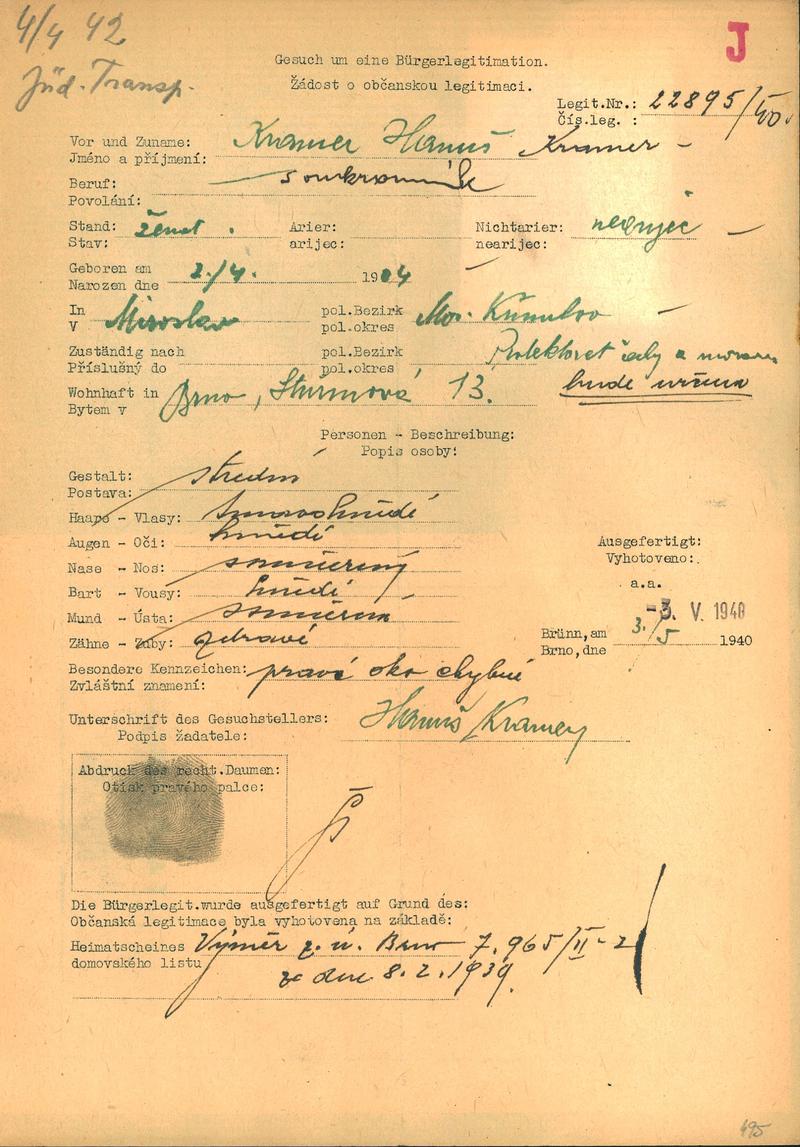 4/4 42
J
Jüd. Transp.
Gesuch um eine Bürgerlegitimation.
Žádost o občanskou legitimaci.
Legit.Nr.: 22895/40
Čís.leg. :
Vor und Zuname: Kramer Hanuš Kramer
Jméno a příjmení:
Beruf: soukromník
Povolání:
Stand: ženat. Arier: Nichtarier: nearijec
Stav: arijec: nearijec:
Geboren am 2./4. 1904
Narozen dne
In Miroslav pol.Bezirk Mor. Krumlov
V pol.okres
Zuständig nach pol.Bezirk Protektorat Čechy a Morava
Příslušný do pol.okres bude určena
Wohnhaft in Brno, Sturmová 13.
Bytem v
Personen - Beschreibung:
Popis osoby:
Gestalt: střední
Postava:
Haare - Vlasy: tmavohnědé
Augen - Oči: hnědé
Nase - Nos: souměrný
Bart - Vousy: hnědé
Mund - Ústa: souměrná
Zähne - Zuby: zdravé
Ausgefertigt:
Vyhotoveno:
a.a.
-3. V. 1940
Brünn, am 3./5 1940
Brno, dne
Besondere Kennzeichen: pravé oko chybné
Zvláštní znamení:
Unterschrift des Gesuchstellers: Hanuš Kramer
Podpis žadatele:
Abdruck des recht.Daumen:
Otisk pravého palce:
Die Bürgerlegit.wurde ausgefertigt auf Grund des:
Občanská legitimace byla vyhotovena na základě:
Heimatscheines Výměr z. ú. Brno 7.965/II-2
domovského listu ze dne 8.2.1939.
495